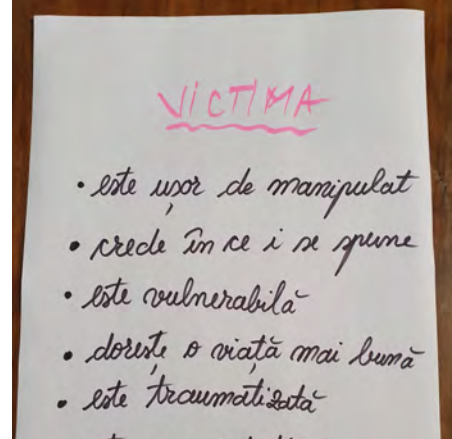 VICTIMA
• este ușor de manipulat
• crede în ce i se spune
• este vulnerabilă
• dorește o viață mai bună
• este traumatizată